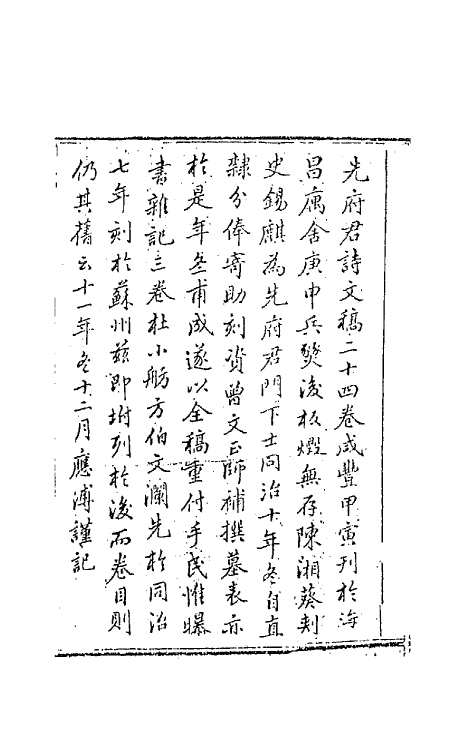 先府君詩文稿二十四卷咸豐甲寅刊於海
昌廨舍庚申兵燹後板燬無存陳湘葵刺
史錫麒為先府君門下士同治十年冬自直
隸分俸寄助刻貲曾文正師補撰墓表亦
於是年冬甫成遂以全稿重付手民惟曝
書雜記三卷杜小舫方伯文瀾先於同治
七年刻於蘇州茲即坿列於後而卷目則
仍其舊云十一年冬十二月應溥謹記